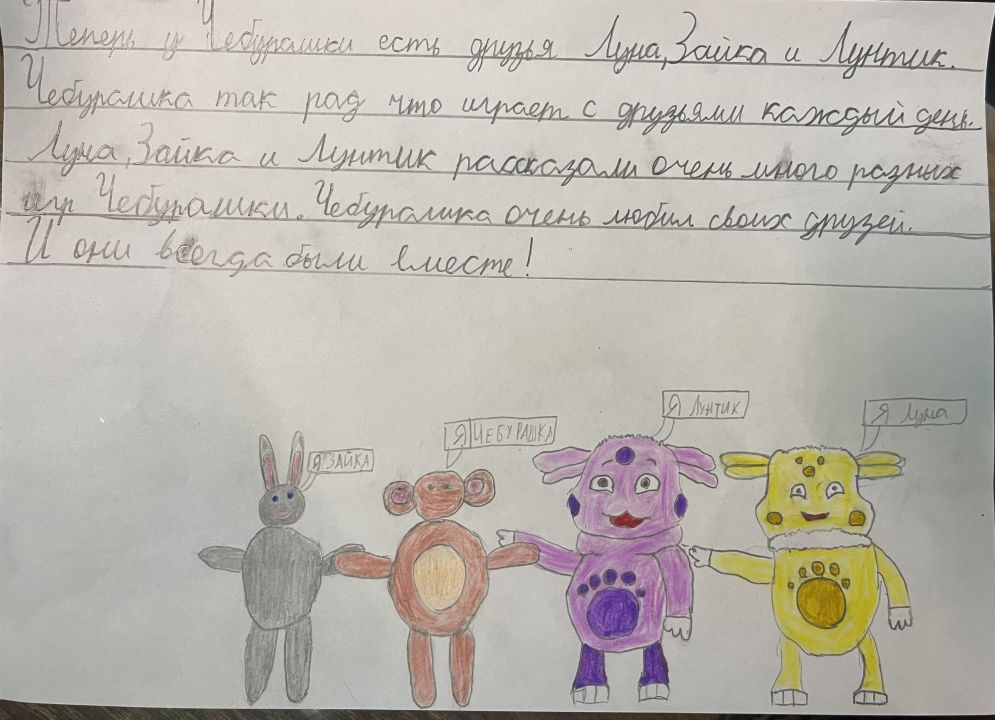 Теперь у Чебурашки есть друзья Луна, Зайка и Лунтик.
Чебурашка так рад что играет с друзьями каждый день.
Луна, Зайка и Лунтик рассказали очень много разных
игр Чебурашки. Чебурашка очень любил своих друзей.
И они всегда были вместе!
Я ЗАЙКА
Я ЧЕБУРАШКА
Я ЛУНТИК
Я Луна